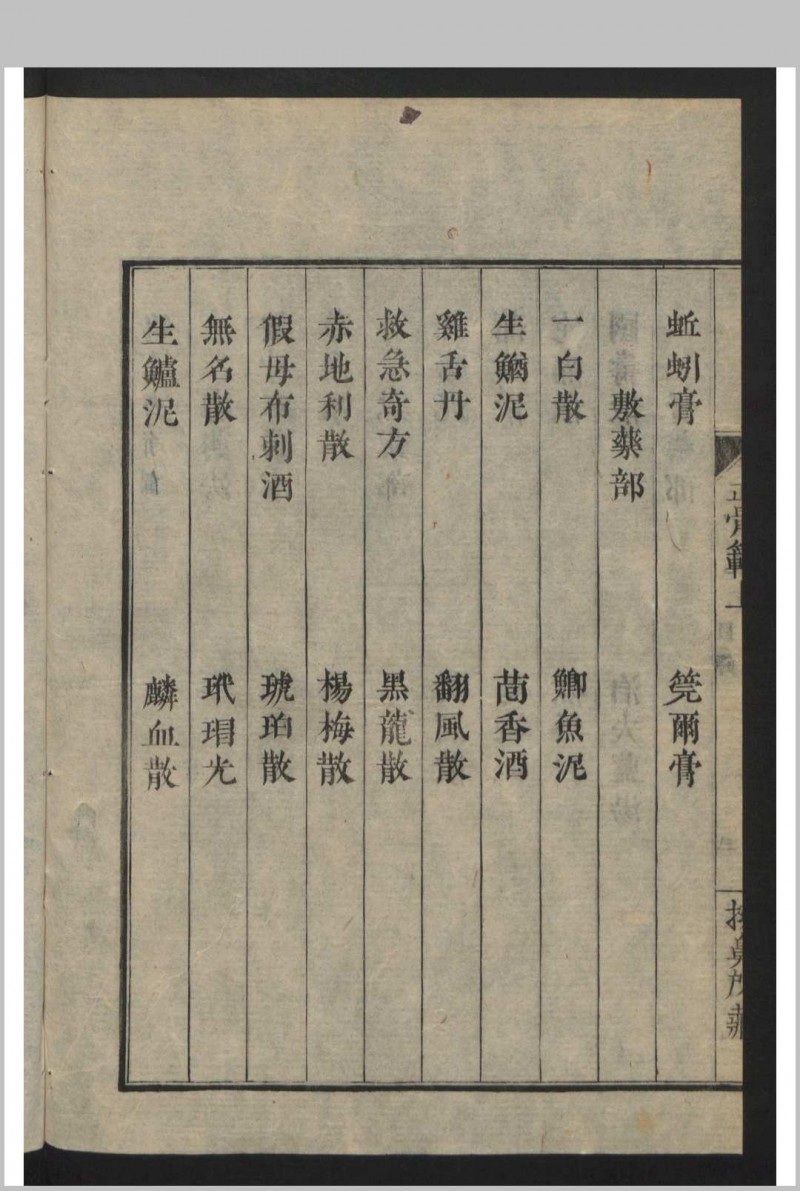 蚯蚓膏　筦爾膏
敷藥部
一白散　鯽魚泥
生鰌泥　茴香酒
雞舌丹　翻風散
救急奇方　黑龍散
赤地利散　楊梅散
假母布刺酒　琥珀散
無名散　玳瑁光
生鱸泥　麟血散
正骨範